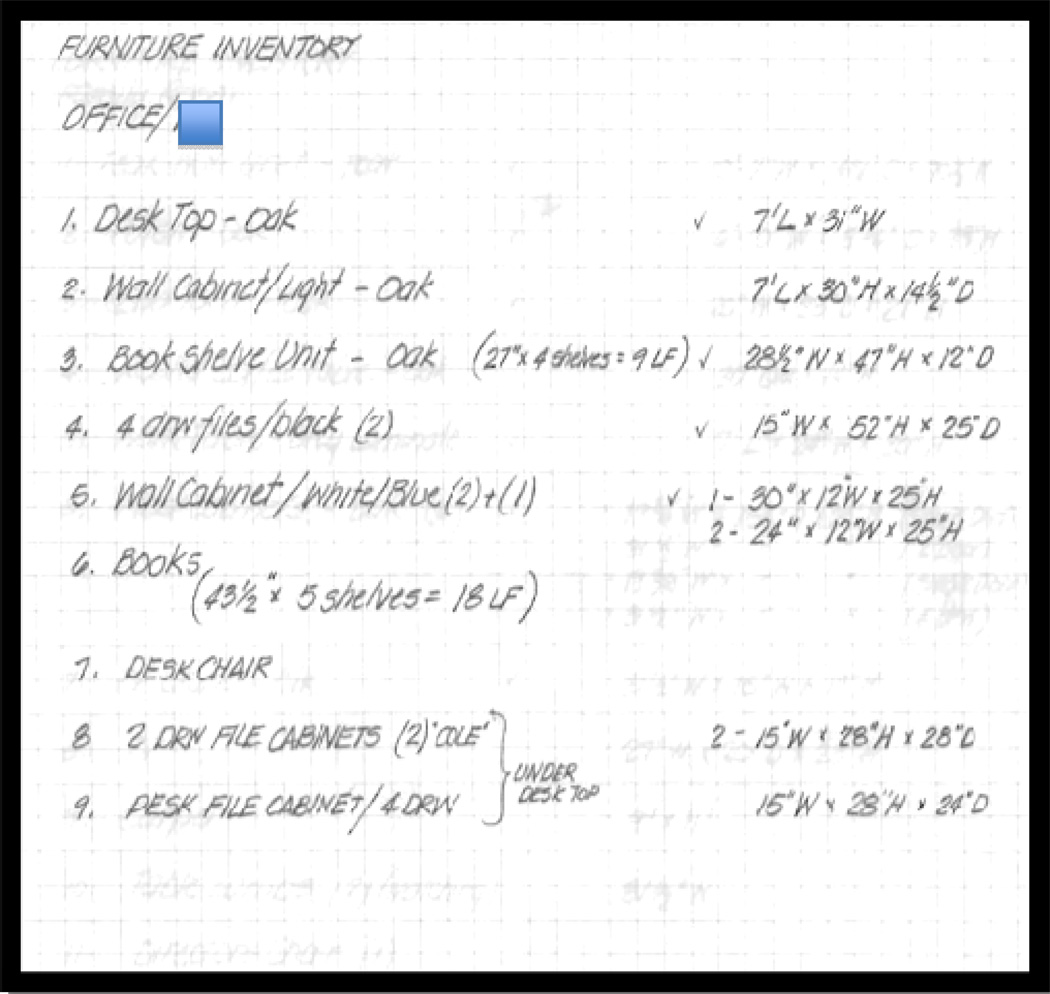 FURNITURE INVENTORY
OFFICE/
1. Desk Top - Oak ✓ 7'L x 31"W
2. Wall Cabinet/Light - Oak 7'L x 30"H x 14½"D
3. Book Shelve Unit - Oak (27" x 4 shelves = 9 LF) ✓ 28½"W x 47"H x 12"D
4. 4 drw files/black (2) ✓ 15"W x 52"H x 25"D
5. Wall Cabinet/White/Blue (2)+(1) ✓ 1- 30" x 12"W x 25"H
2- 24" x 12"W x 25"H
6. Books
(43½" x 5 shelves = 18 LF)
7. DESK CHAIR
8 2 DRW FILE CABINETS (2) "COLE" 2- 15"W x 28"H x 28"D
UNDER
DESK TOP
9. DESK FILE CABINET/4 DRW 15"W x 28"H x 24"D